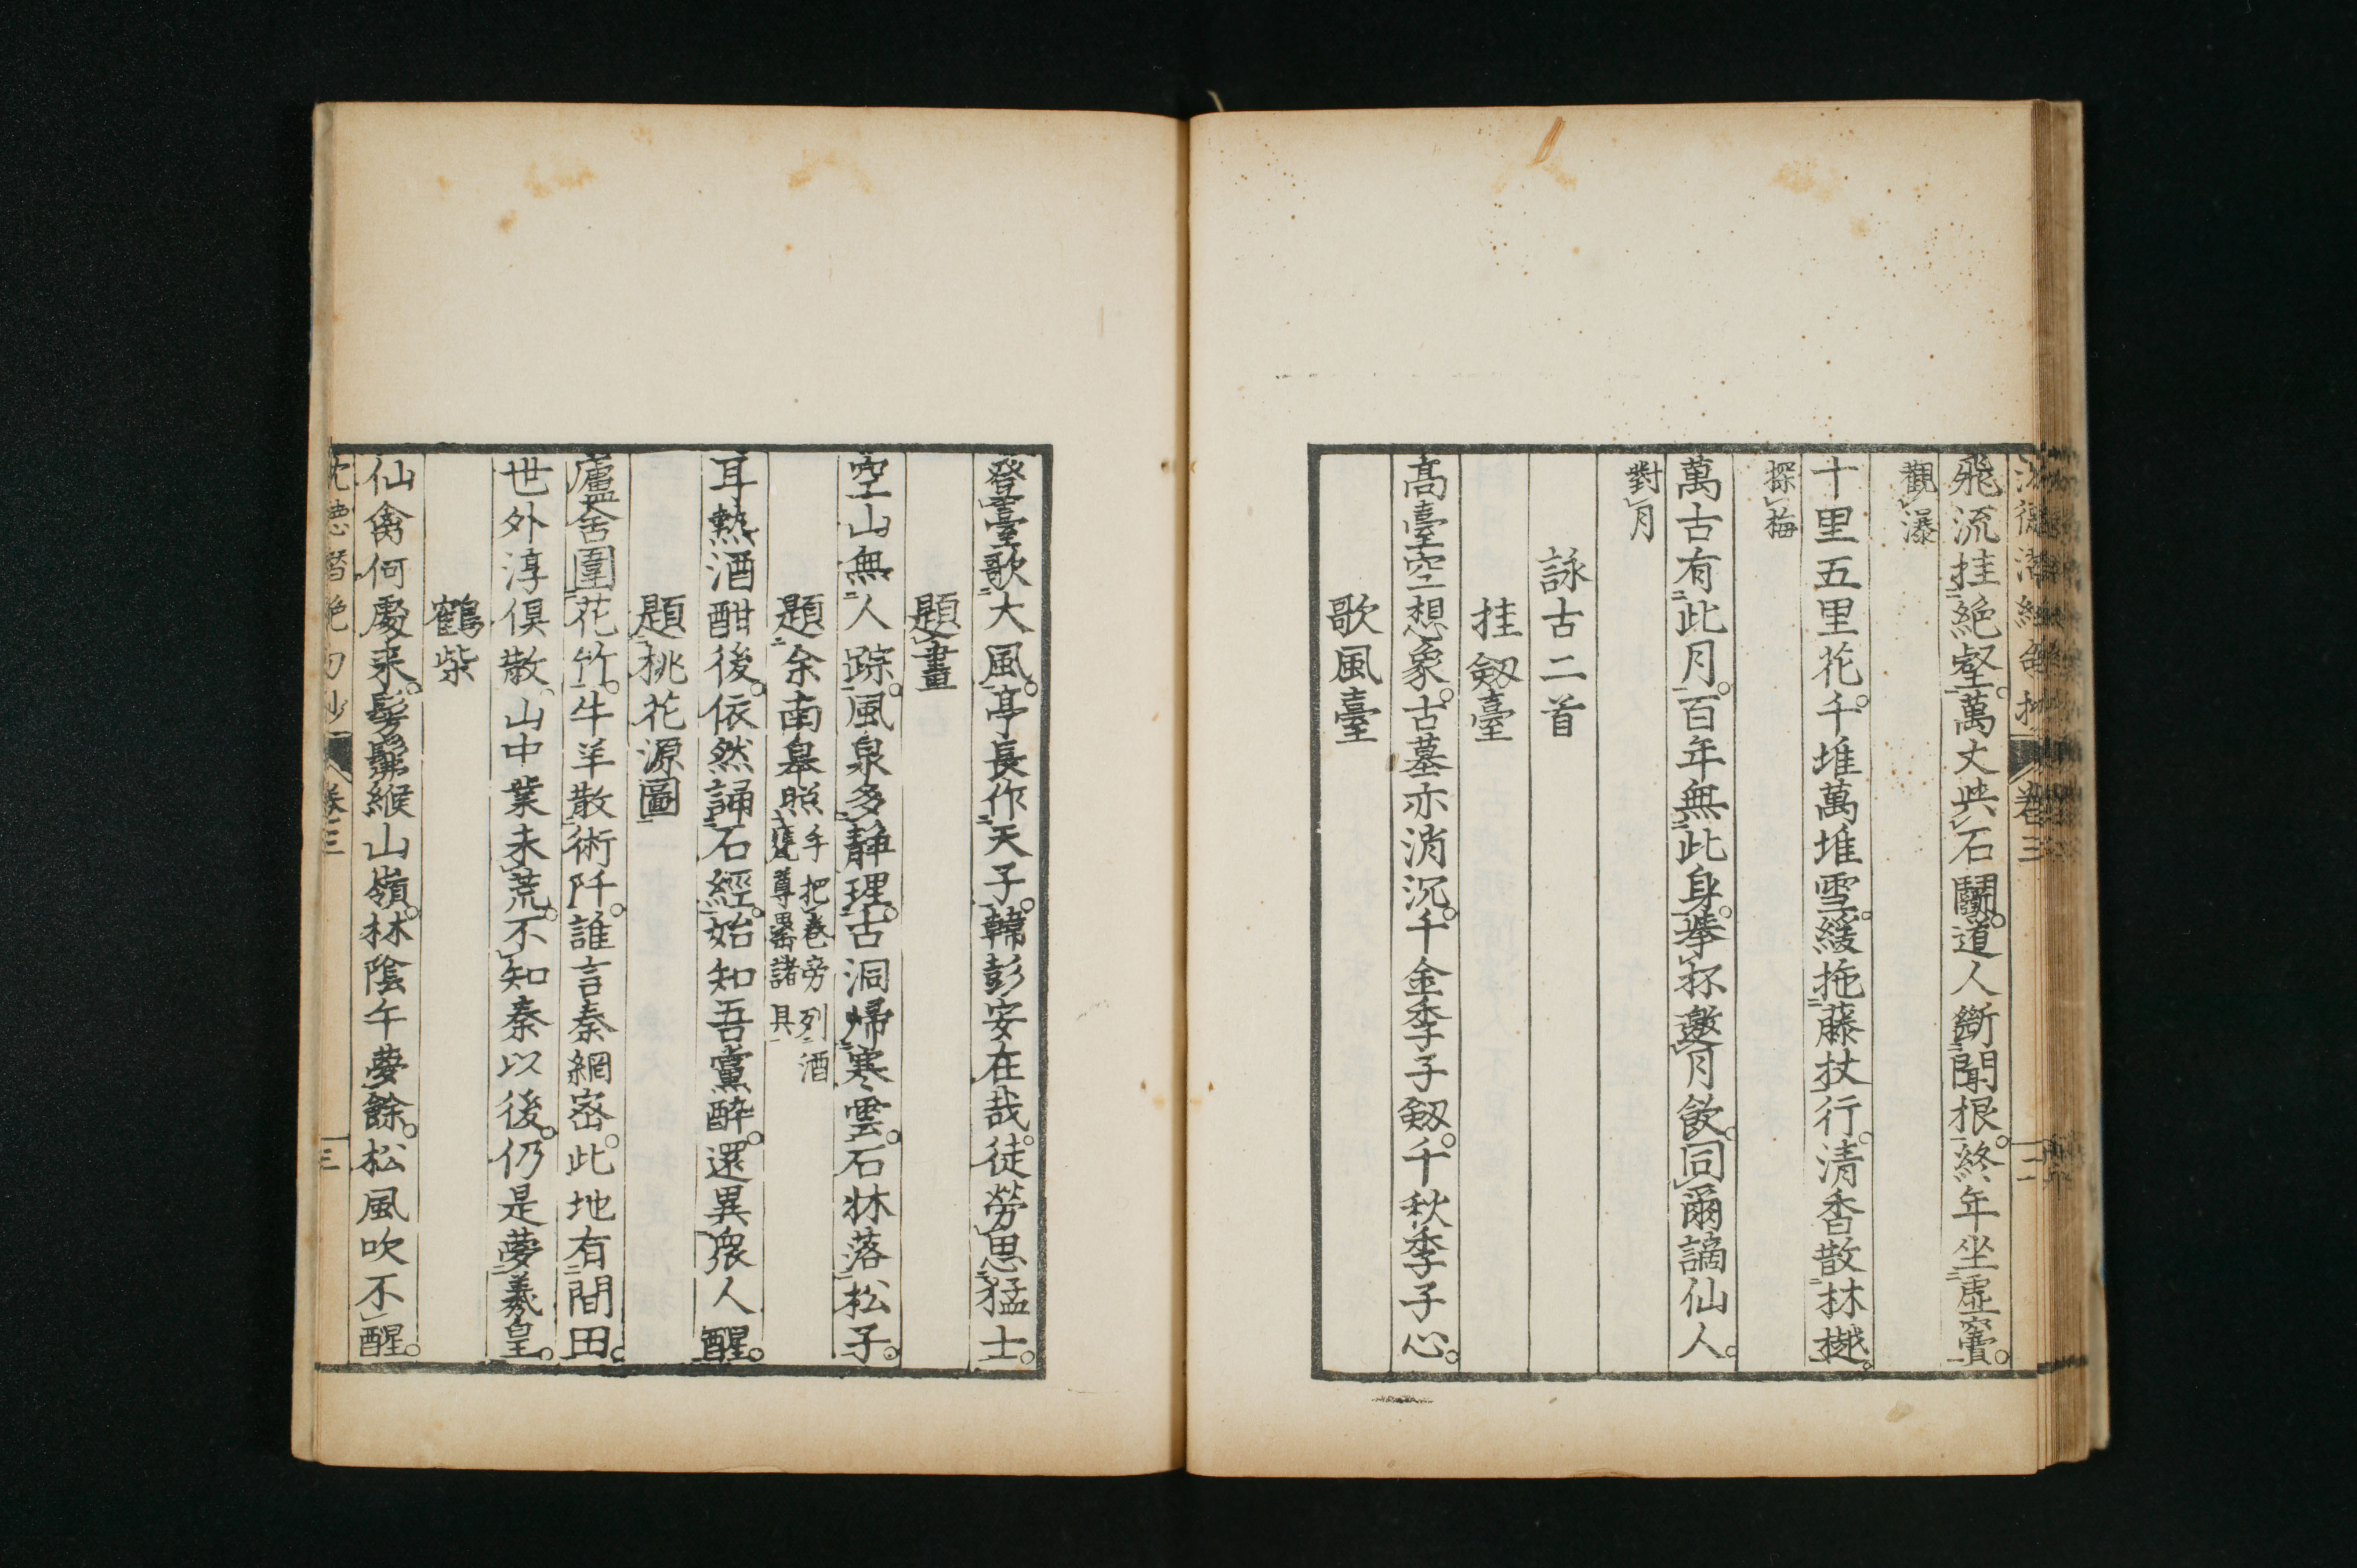 飛流挂絶壑。萬丈與石鬭。道人斷聞根。終年坐虛竇。
觀瀑
十里五里花。千堆萬堆雪。緩拖藤杖行。清香散林樾。
探梅
萬古有此月。百年無此身。擧杯邀月飲。同爾謫仙人。
對月
詠古二首
挂劔臺
高臺空想象。古墓亦消沉。千金季子劔。千秋季子心。
歌風臺
登臺歌大風。亭長作天子。韓彭安在哉。徒勞思猛士。
題畫
空山無人踪。風泉多靜理。古洞歸寒雲。石牀落松子。
題余南皋照手把卷旁列酒甕尊罍諸具
耳熱酒酣後。依然誦石經。始知吾黨醉。還異衆人醒。
題桃花源圖
廬舍圍花竹。牛羊散術阡。誰言秦網密。此地有間田。
世外淳俱散。山中業未荒。不知秦以後。仍是夢羲皇。
鶴柴
仙禽何處來。髣髴緱山嶺。林陰午夢餘。松風吹不醒。
沈德潛絶句抄 卷三 三